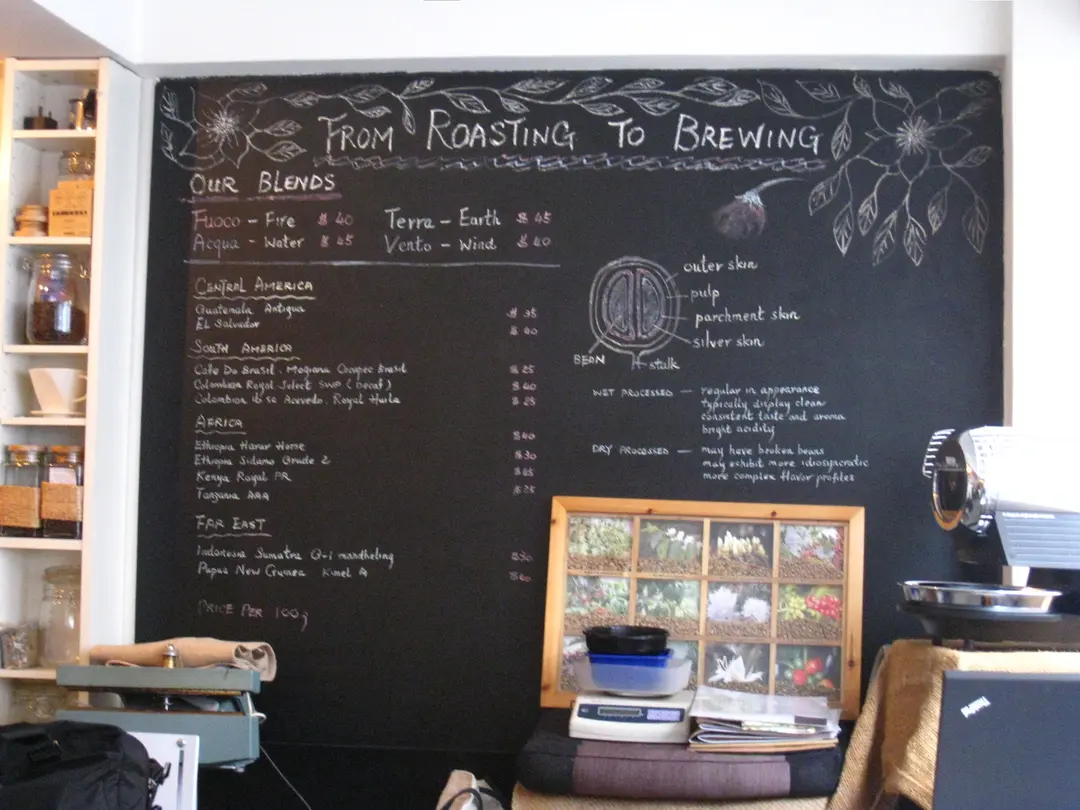 FROM ROASTING TO BREWING
OUR BLENDS
Fuoco - Fire $ 40 Terra - Earth $ 45
Acqua - Water $ 45 Vento - Wind $ 40
CENTRAL AMERICA
Guatemala Antigua $ 35
EL Salvador $ 40
SOUTH AMERICA
Cafe Do Brasil. Mogiana Brasil $ 25
Colombian Royal Select SWP (Decaf) $ 40
Colombian Acevedo. Royal Huila $ 25
AFRICA
Ethiopia Harar Horse $40
Ethiopia Sidamo Grade 2 $30
Kenya Royal PR
Tanzania AAA $25
FAR EAST
Indonesia Sumatra G-1 mandheling $30
Papua New Guinea Kimel A
PRICE PER 100g
outer skin
pulp
parchment skin
silver skin
BEAN
stalk
WET PROCESSED — regular in appearance
typically display clean
consistent taste and aroma
bright acidity
DRY PROCESSED — may have broken beans
may exhibit more idiosyncratic
more complex flavor profiles
ThinkPad